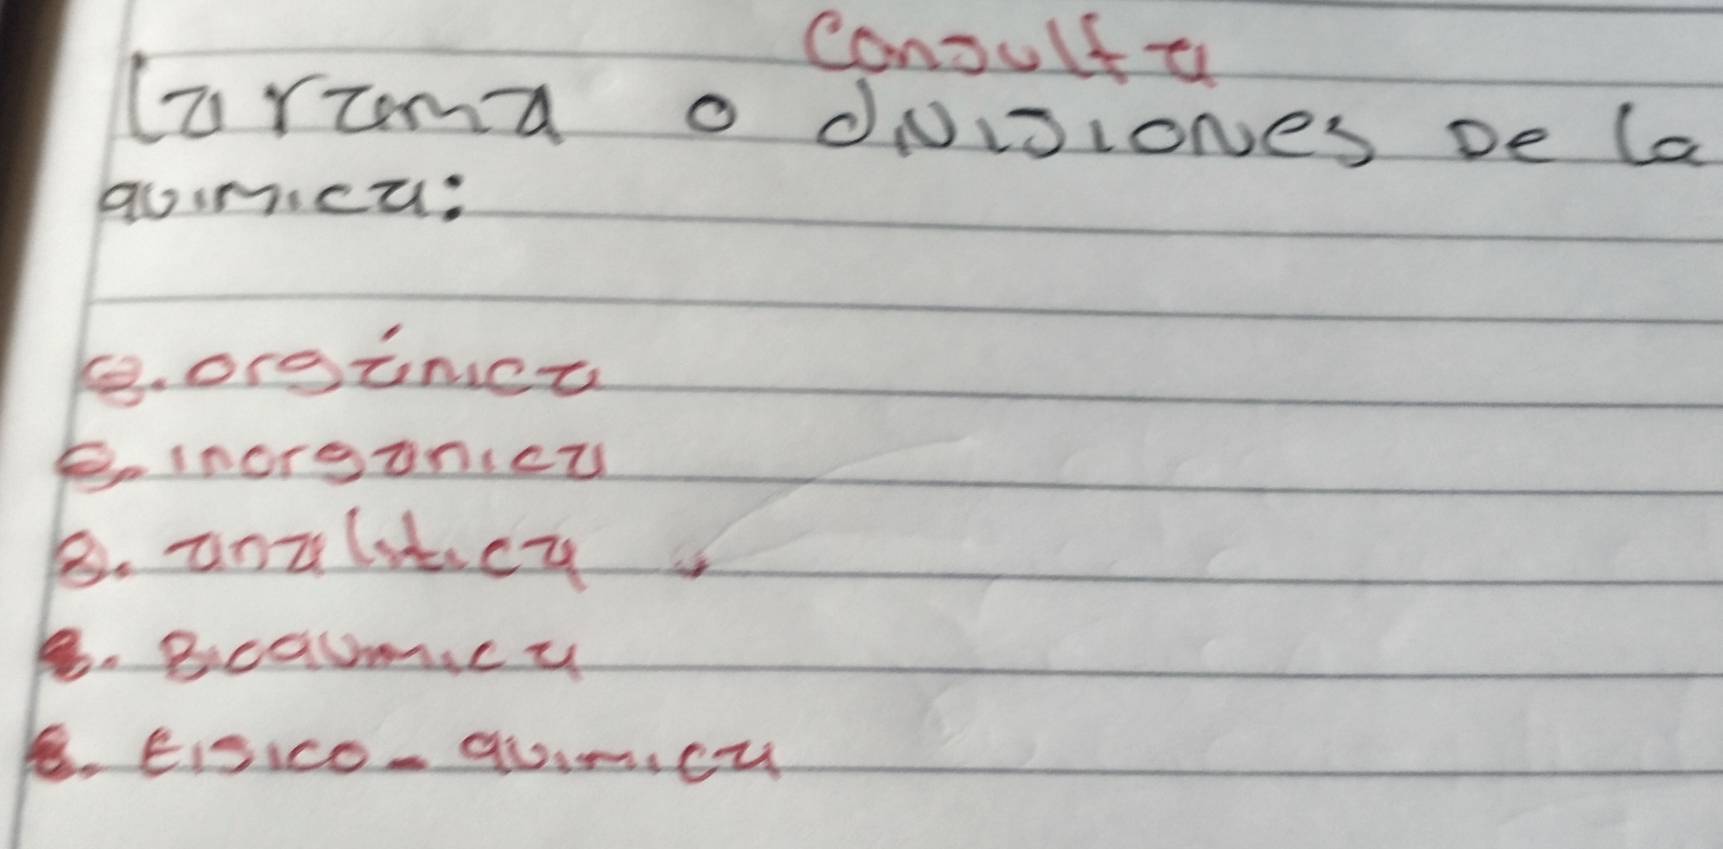 Consulta
la rama o divisiones De la
quimica:
orgánica
inorganica
analitica
Bioquimica
Fisico-quimica